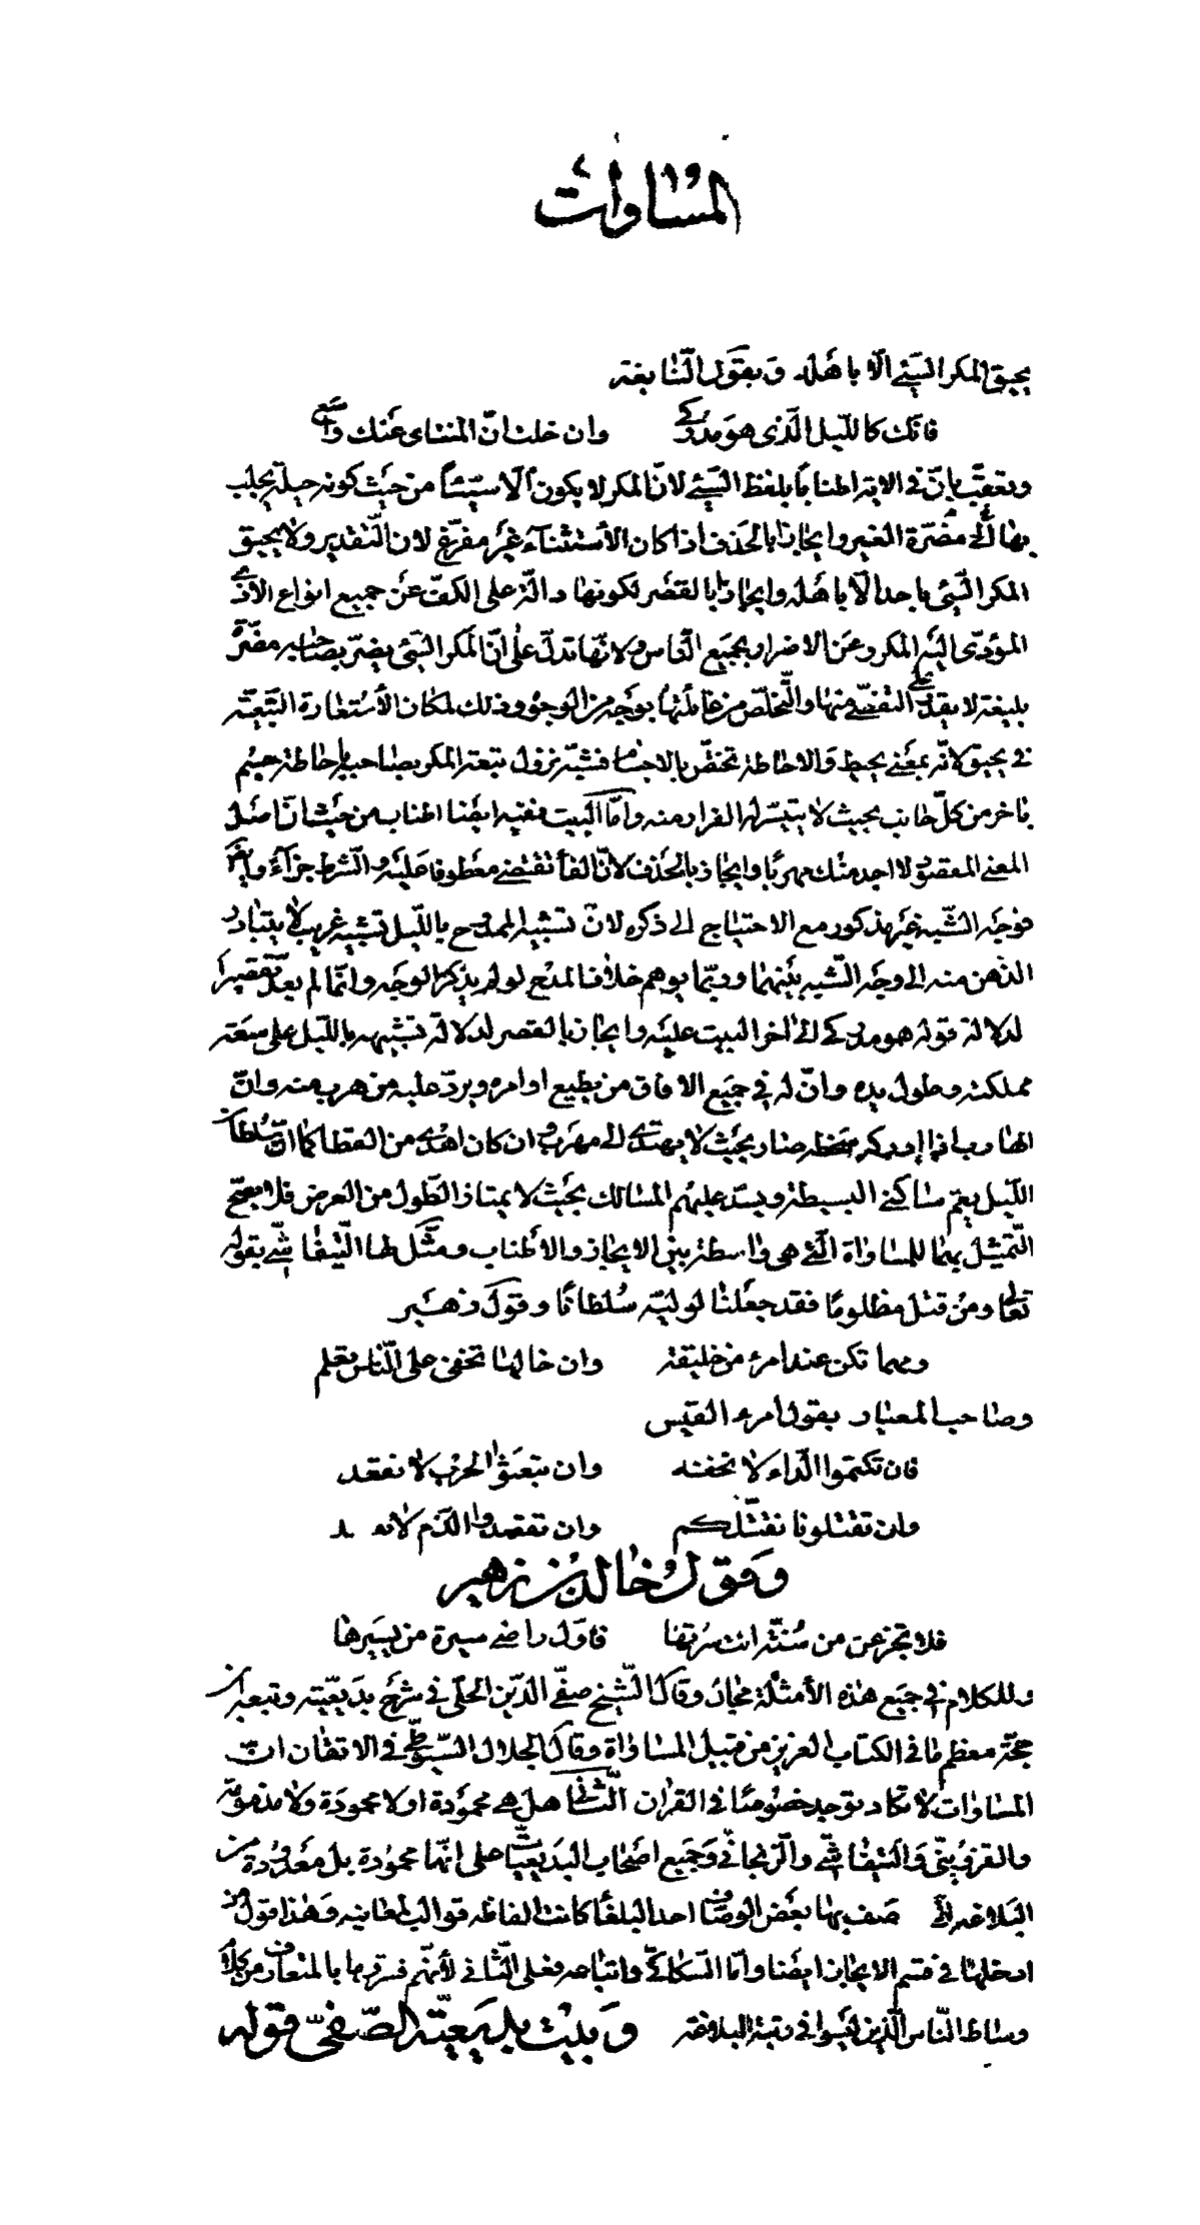 المساوات
يحيق المكر السيئ الا باهله وبقول النابغة
فانك كالليل الذى هو مدركى وان خلت ان المنتاى عنك واسع
وتعقب بان فى الاية اطنابا بلفظ السيئ لان المكر لا يكون الا سيئا من حيث كونه حيلة يجلب
بها الى مضرة الغير وايجازا بالحذف اذا كان الاستثناء غير مفرغ لان التقدير ولا يحيق
المكر السيئ باحد الا باهله وايجازا بالقصر لكونها دالة على الكف عن جميع انواع الاذى
المؤدى اليه المكر وعن الاضرار بجميع الناس ولانها تدل على ان المكر السيئ يضر بصاحبه مضرة
بليغة لا يقدر على التفصى منها والتخلص من غائلتها بوجه من الوجوه وذلك لمكان الاستعارة التبعية
فى يحيق لانه بمعنى يحيط والاحاطة تختص بالاجسام فشبه نزول تبعة المكر بصاحبه باحاطة جسم
باخر من كل جانب بحيث لا يتيسر له الفرار منه واما البيت ففيه ايضا اطناب من حيث ان اصل
المعنى المقصود لا اجد منك مهربا وايجاز بالحذف لان الفا تقتضى معطوفا عليه والشرط جزاء وايضا
فوجه الشبه غير مذكور مع الاحتياج الى ذكره لان تشبيه الممدوح بالليل تشبيه غريب لا يتبادر
الذهن منه الى وجه الشبه بينهما وربما يوهم خلاف المدح لو لم يذكر الوجه وانما لم يعد تقصيرا
لدلالة قوله هو مدركى الى اخر البيت عليه وايجاز بالقصر لدلالة تشبيهه بالليل على سعة
مملكته وطول يده وان له فى جميع الافاق من يطيع اوامره ويرد عليه من هرب منه وان
الهارب اذا ادركه سخطه صار بحيث لا يهتدى الى مهرب وان كان اهدى من القطا كما ان سلطان
الليل يعم ساكنى البسيطة ويسد عليهم المسالك بحيث لا يمتاز الطول من العرض فلا يصح
التمثيل بهما للمساواة التى هى واسطة بين الايجاز والاطناب ومثل لها التيفاشى بقوله
تعالى ومن قتل مظلوما فقد جعلنا لوليه سلطانا وقول زهير
ومهما تكن عند امرء من خليقة وان خالها تخفى على الناس تعلم
وصاحب المعيار بقول امرء القيس
فان تكتموا الداء لا نخفه وان تبعثوا الحرب لا نقعد
وان تقتلونا نقتلكم وان تقصدوا الدم لانه
وقول خالد بن زهير
فلا تجزعن من سنة انت سرتها فاول راضى سيرة من يسيرها
وللكلام فى جميع هذه الامثلة مجال وقال الشيخ صفى الدين الحلى فى شرح بديعيته وتبعه ابن
حجة معظم ما فى الكتاب العزيز من قبيل المساواة وقال الجلال السيوطى فى الاتقان ان
المساوات لا تكاد توجد خصوصا فى القران الثانى هل هى محمودة او لا محمودة ولا مذمومة
والقزوينى والتيفاشى والزنجانى وجميع اصحاب البديعيات على انها محمودة بل معدودة من
البلاغة التى وصف بها بعض الوصاف احد البلغا كانت الفاظه قوالب لمعانيه وهذا قول من
ادخلها فى قسم الايجاز ايضا واما السكاكى واتباعه فعلى الثانى لانهم فسروها بالمتعارف من كلام
وساط الناس الذين ليسوا فى رتبة البلاغة وبيت بديعية الصفى قوله